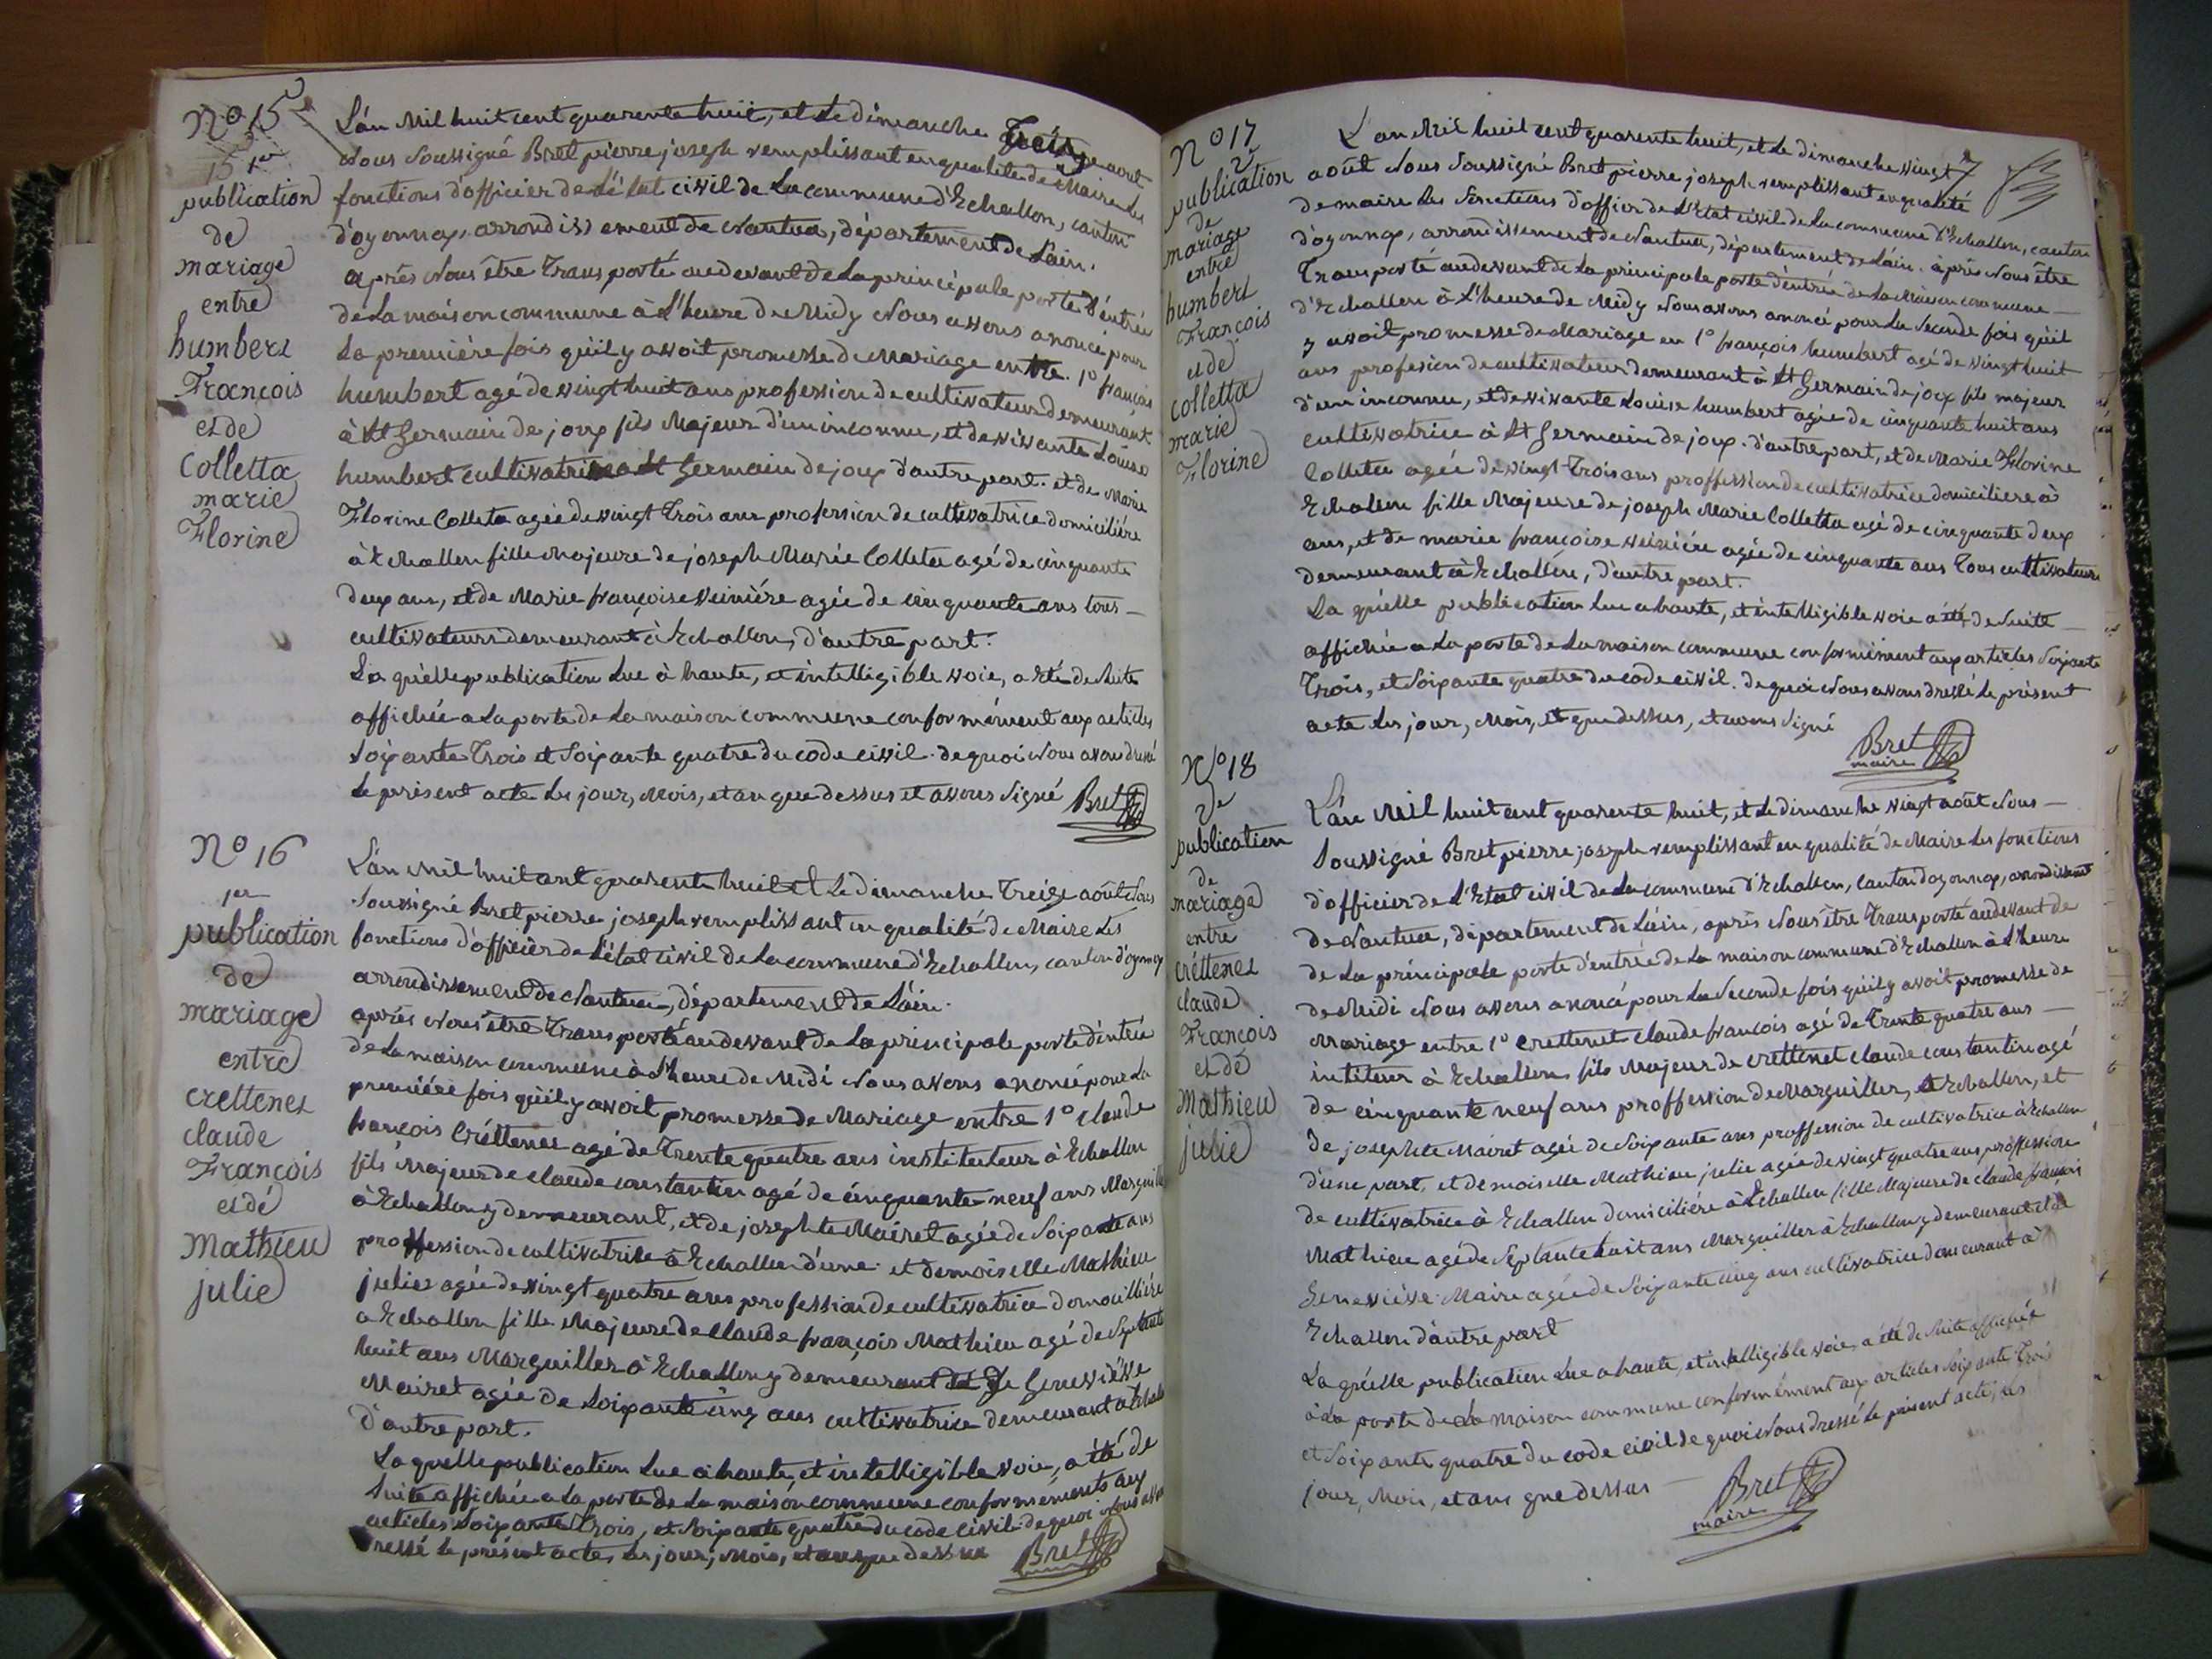 No 15
1er
publication
de
mariage
entre
humbert
François
et de
Colletta
marie
Florine
L'an Mil huit cent quarente huit, et Le dimanche Treize aout
Nous Soussigné Bret pierre joseph remplissant en qualité de Maire les
fonctions d'officier de L'état civil de La commune d'Echallon, canton
d'oyonnax, arrondissement de Nantua, département de L'ain.
après Nous être Transporté au devant de La principale porte d'entrée
de La maison commune à L'heure de Midy Nous avons anoncé pour
La première fois qu'il y avoit promesse de Mariage entre. 1o françois
humbert agé de vingt huit ans profession de cultivateur demeurant
à St Germain de joux fils Majeur d'un inconnu, et de vivante Louise
humbert cultivatrice a St Germain de joux d'autre part. et de Marie
Florine Colleta agée de vingt Trois ans profession de cultivatrice domicilière
à Echallon fille Majeure de joseph Marie Colleta agé de cinquante
deux ans, et de Marie françoise Veinière agée de cinquante ans tous
cultivateurs demeurant à Echallon, d'autre part.
La quèlle publication Lue à haute, et intelligible voie, a été de Suite
affichée a La porte de La maison commune conformément aux articles
Soixante Trois et Soixante quatre du code civil. de quoi Nous avons dressé
Le présent acte Les jour, Mois, et an que dessus et avons Signé
Bret
No 16
1er
publication
de
mariage
entre
crettenet
claude
François
et dé
Mathieu
julie
L'an Mil huit cent quarente huit et Le dimanche Treize août Nous
Soussigné Bret pierre joseph remplissant en qualité de Maire Les
fonctions d'officier de L'état civil de La commune d'Echallon, canton d'oyonnax
arrondissement de Nantua, département de L'ain.
après Nous être Transporté au devant de La principale porte d'entrée
de La maison commune à L'heure de Midi Nous avons anoncé pour La
première fois qu'il y avoit promesse de Mariage entre 1o claude
françois Créttenet agé de Trente quatre ans instituteur à Echallon
fils Majeur de claude constantin agé de cinquante neuf ans Marguiller
à Echallon y demeurant, et de josephte Mairet agée de Soixante ans
proffession de cultivatrice à Echallon d'une. et demoiselle Mathieu
julie agée de vingt quatre ans profession de cultivatrice domicillière
a Echallon fille Majeure de Claude françois Mathieu agé de Septante
huit ans Marguiller à Echallon y demeurant et de Geneviève
Mairet agée de Soixante cinq ans cultivatrice demeurant a Echallon
d'autre part.
La quelle publication Lue à haute et intelligible voie, a été de
Suite affichée a La porte de La maison commune conformements aux
articles Soixante Trois, et Soixante quatre du code civil. de quoi Nous avons
dressé Le présent acte, Les jour, Mois, et an que dessus
Bret
No 17
2e
publication
de
mariage
entre
humbert
François
et de
colletta
marie
Florine
7
L'an Mil huit cent quarente huit, et Le dimanche vingt
août Nous Soussigné Bret pierre joseph remplissant en qualité
de maire Les fonctions d'officier de L'Etat civil de La commune d'Echallon, canton
d'oyonnax, arrondissement de Nantua, département de L'ain. après Nous être
Transporté au devant de La principale porte d'entrée de La Maison commune
d'Echallon à L'heure de Midy Nous avons anoncé pour La Seconde fois qu'il
y avoit promesse de Mariage en 1o françois humbert agé de vingt huit
ans profesion de cultivateur demeurant à St Germain de joux fils majeur
d'un inconnu, et de vivante Louise humbert agée de cinquante huit ans
cultivatrice à St Germain de joux. d'autre part, et de Marie Florine
Colleta agée de vingt Trois ans proffession de cultivatrice domiciliere à
Echalon fille Majeure de joseph Marie Colletta agé de cinquante deux
ans, et de marie françoise veinière agée de cinquante ans Tous cultivateurs
demeurant à Echallon, d'autre part.
La quèlle publication Lue a haute, et intelligible voie a été de Suite
affichée a La porte de La maison commune conformément aux articles Soixante
Trois, et Soixante quatre du code civil. de quoi Nous avons dressé Le présent
acte Les jour, Mois, et que dessus, et avons Signé
Bret
maire
No 18
2e
publication
de
mariage
entre
créttenet
claude
François
et dé
Mathieu
julie
L'an Mil huit cent quarente huit, et Le dimanche vingt août Nous
Soussigné Bret pierre joseph remplissant en qualité de Maire Les fonctions
d'officier de L'Etat civil de La commune d'Echallon, canton d'oyonnax, arrondissement
de Nantua, département de L'ain, après Nous être Transporté au devant de
de La principale porte d'entrée de La maison commune d'Echallon à L'heure
de Midi Nous avons anoncé pour La Seconde fois qu'il y avoit promesse de
Mariage entre 1o Crettenet claude françois agé de Trente quatre ans
intiteur à Echallon, fils Majeur de crettenet claude constantin agé
de cinquante neuf ans proffession de Marguiller, à Echallon, et
de josephte Mairet agée de Soixante ans proffession de cultivatrice à Echallon
d'une part, et demoiselle Mathieu julie agée de vingt quatre ans proffession
de cultivatrice à Echallon domicilière à Echallon fille Majeure de claude françois
Mathieu agé de Septante huit ans Marguiller à Echallon y demeurant et de
Geneviève Maire agée de Soixante cinq ans cultivatrice demeurant à
Echallon d'autre part
La quèlle publication Lue a haute, et intelligible voie, a été de Suite affichée
à La porte de La maison commune conformément aux articles Soixante Trois
et Soixante quatre du code civil de quoi Nous dressé Le présent acte, Les
jour, Mois, et ans que dessus
Bret
maire